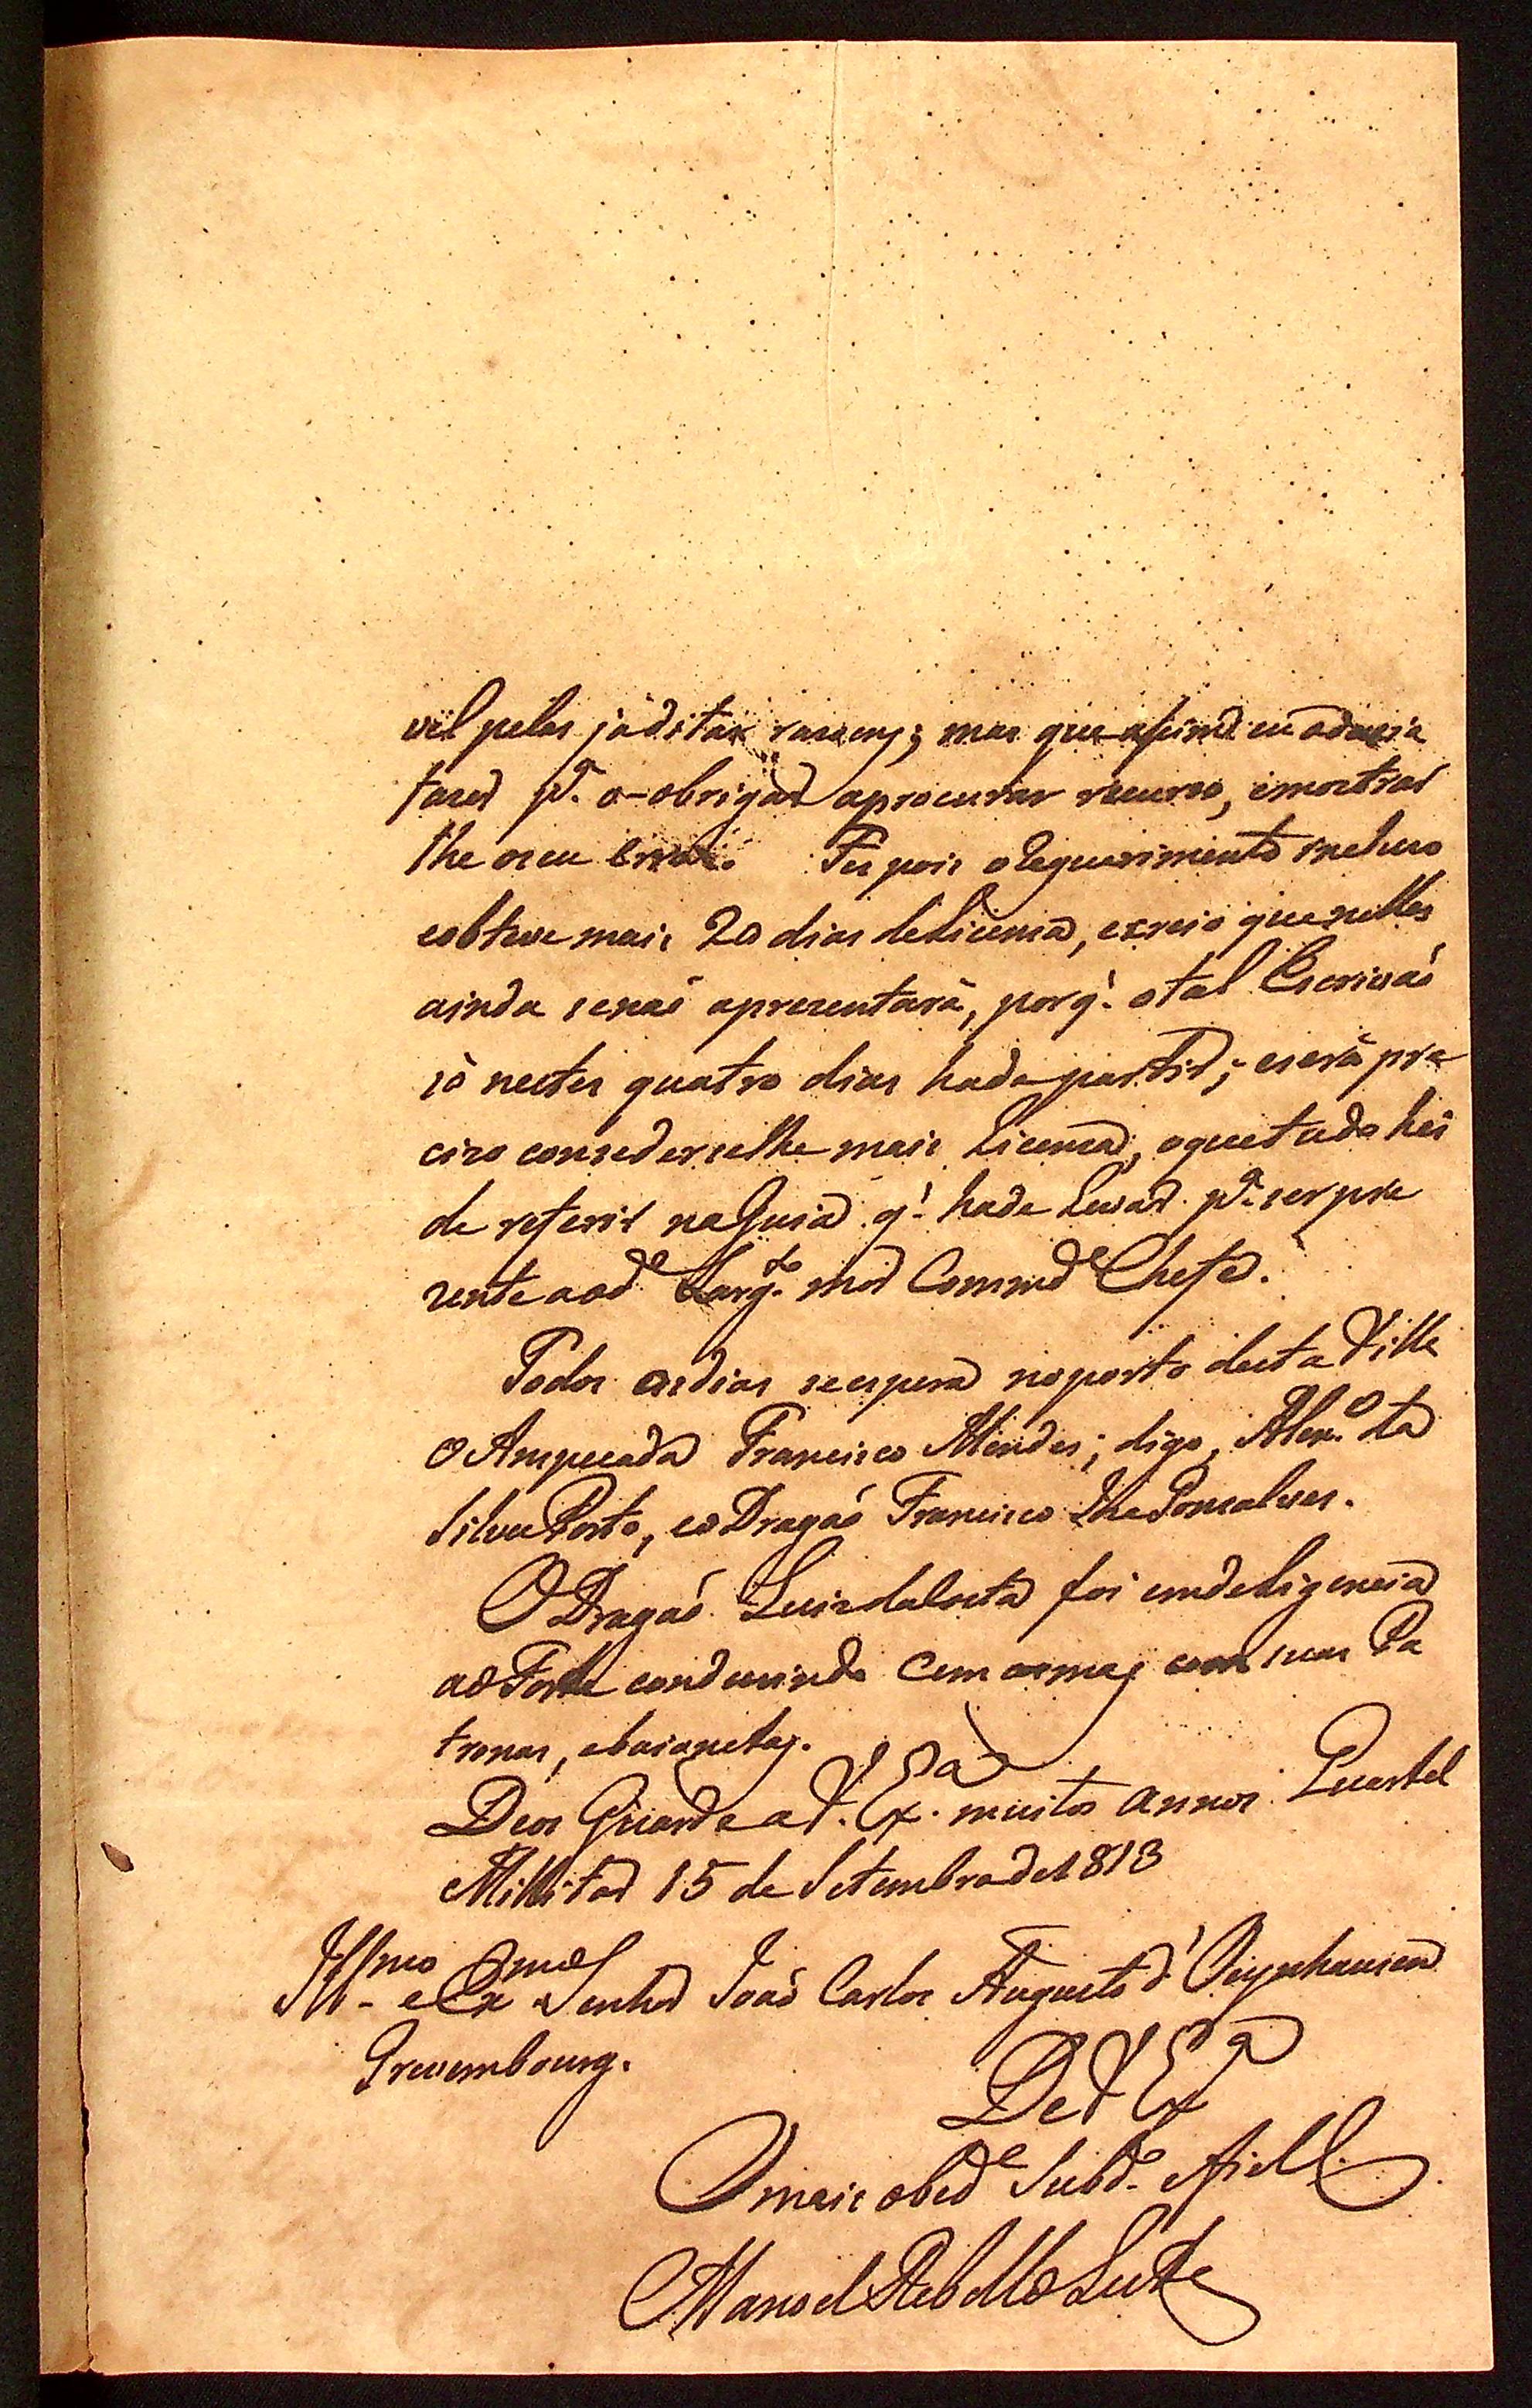 vel pelas jáditas rasoens; mas que assim eu odevia
fazer pª. o-obrigar aprocurar recurso, emostrar
lhe oseu erro. Fes pois oRequerimento incluso
eobteve mais 20 dias deLicensa, ecreio que nelles
ainda senaó aprezentará, porq̀. otal Escrivaó
só nestes quatro dias hade partir; eserá pre
cizo consederselhe mais Licensa, oquetudo hei
de referir naGuia q̀. hade Levar pª. ser pre
zente aod.º Sarg.to mór Comm.de Chefe.
Todos osdias seespera noporto desta Villa
O Anspecada Francisco Mendes; digo, Alex.e da
Silva Porto, eoDragaó Francisco Jhe Gonsalves.
O Dragaó Luis daCosta foi emdeligencia
aoForte condusindo Cem armas com suas Pa
tronas, ebaionetas.
Deos Guarde a V. Ex.ª muitos annos. Quartel
Millitar 15 de Setembro de1813
Ill.mo e Ex.mo Senhor Joaó Carlos Augusto d'Oeynhausen
Grevembourg.
De V Ex.ª
O mais obed.e Subd.º efiel C.
Manoel Rebello Leite